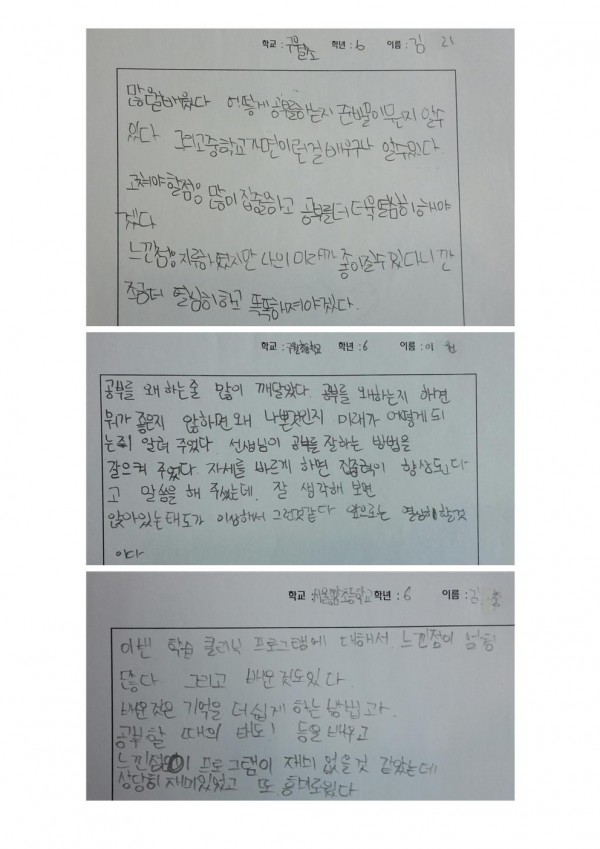 학교 : 구월초 학년 : 6 이름 : 김
많을걸배웠다 어떻게 공부를하는지 준비물이무엇인지 알수
있다 그리고중학교가면이런걸배우구나 알수있다.
고쳐야할점은 많이 집중을하고 공부를더더욱열심히해야
겠다
느낀점은지루하였지만 나의미래가 좋아질수있다니깐
조금더 열심히하고 똑똑해져야겠다.
학교 : 구월초등학교 학년 : 6 이름 : 이
공부를 왜 하는줄 많이 깨달았다. 공부를 왜하는지 하면
뭐가 좋은지 않하면 왜 나쁜것인지 미래가 어떻게 되
는쥐 알려 주었다. 선생님이 공부를 잘하는 방법을
갈으켜 주었다. 자세를 바르게 하면 집중력이 향상된다
고 말씀을 해 주셨는데, 잘 생각해 보면
앉아있는태도가 이상해서 그런것같다 앞으로는 열심히할것
이다
학교 : 학년 : 6 이름 : 김
이번 학습 클리닉 프로그램에 대해서 느낀점이 엄청
많다 그리고 배운것도있다.
배운것은 기억을 더쉽게 하는 방법과.
공부할 때의 태도! 등을 배우고
느낀점은이 프로그램이 재미 없을것 같았는데
상당히 재미있었고 또 흥미로웠다